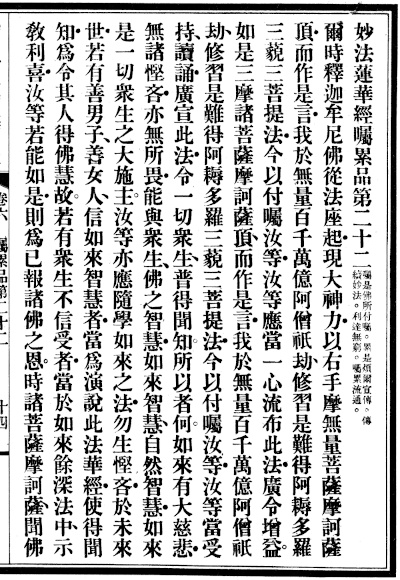 妙法蓮華經囑累品第二十二
囑是佛所付囑。累是煩爾宣傳。傳
續妙法。利達無窮。囑累流通。
爾時釋迦牟尼佛從法座起現大神力以右手摩無量菩薩摩訶薩
頂而作是言我於無量百千萬億阿僧祇劫修習是難得阿耨多羅
三藐三菩提法今以付囑汝等汝等應當一心流布此法廣令增益。
如是三摩諸菩薩摩訶薩頂而作是言我於無量百千萬億阿僧祇
劫修習是難得阿耨多羅三藐三菩提法今以付囑汝等汝等當受
持讀誦廣宣此法令一切衆生普得聞知所以者何。如來有大慈悲
無諸慳吝亦無所畏能與衆生佛之智慧如來智慧自然智慧如來
是一切衆生之大施主。汝等亦應隨學如來之法勿生慳吝於未來
世若有善男子善女人信如來智慧者當爲演說此法華經使得聞
知爲令其人得佛慧故。若有衆生不信受者當於如來餘深法中示
教利喜汝等若能如是則爲已報諸佛之恩。時諸菩薩摩訶薩聞佛
卷六
囑累品第二十二
十四